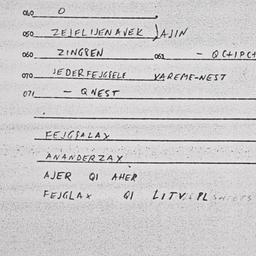 040 O
050 ZEJELIJENAVEK JAJIN
060 ZINGREN 061 -
070 JEDERFEJGSELE VAREME-NEST
071 - QNEST
FEJGSALAX
ANANDERZAX
AJER QI AHER
FEJGLAX QI